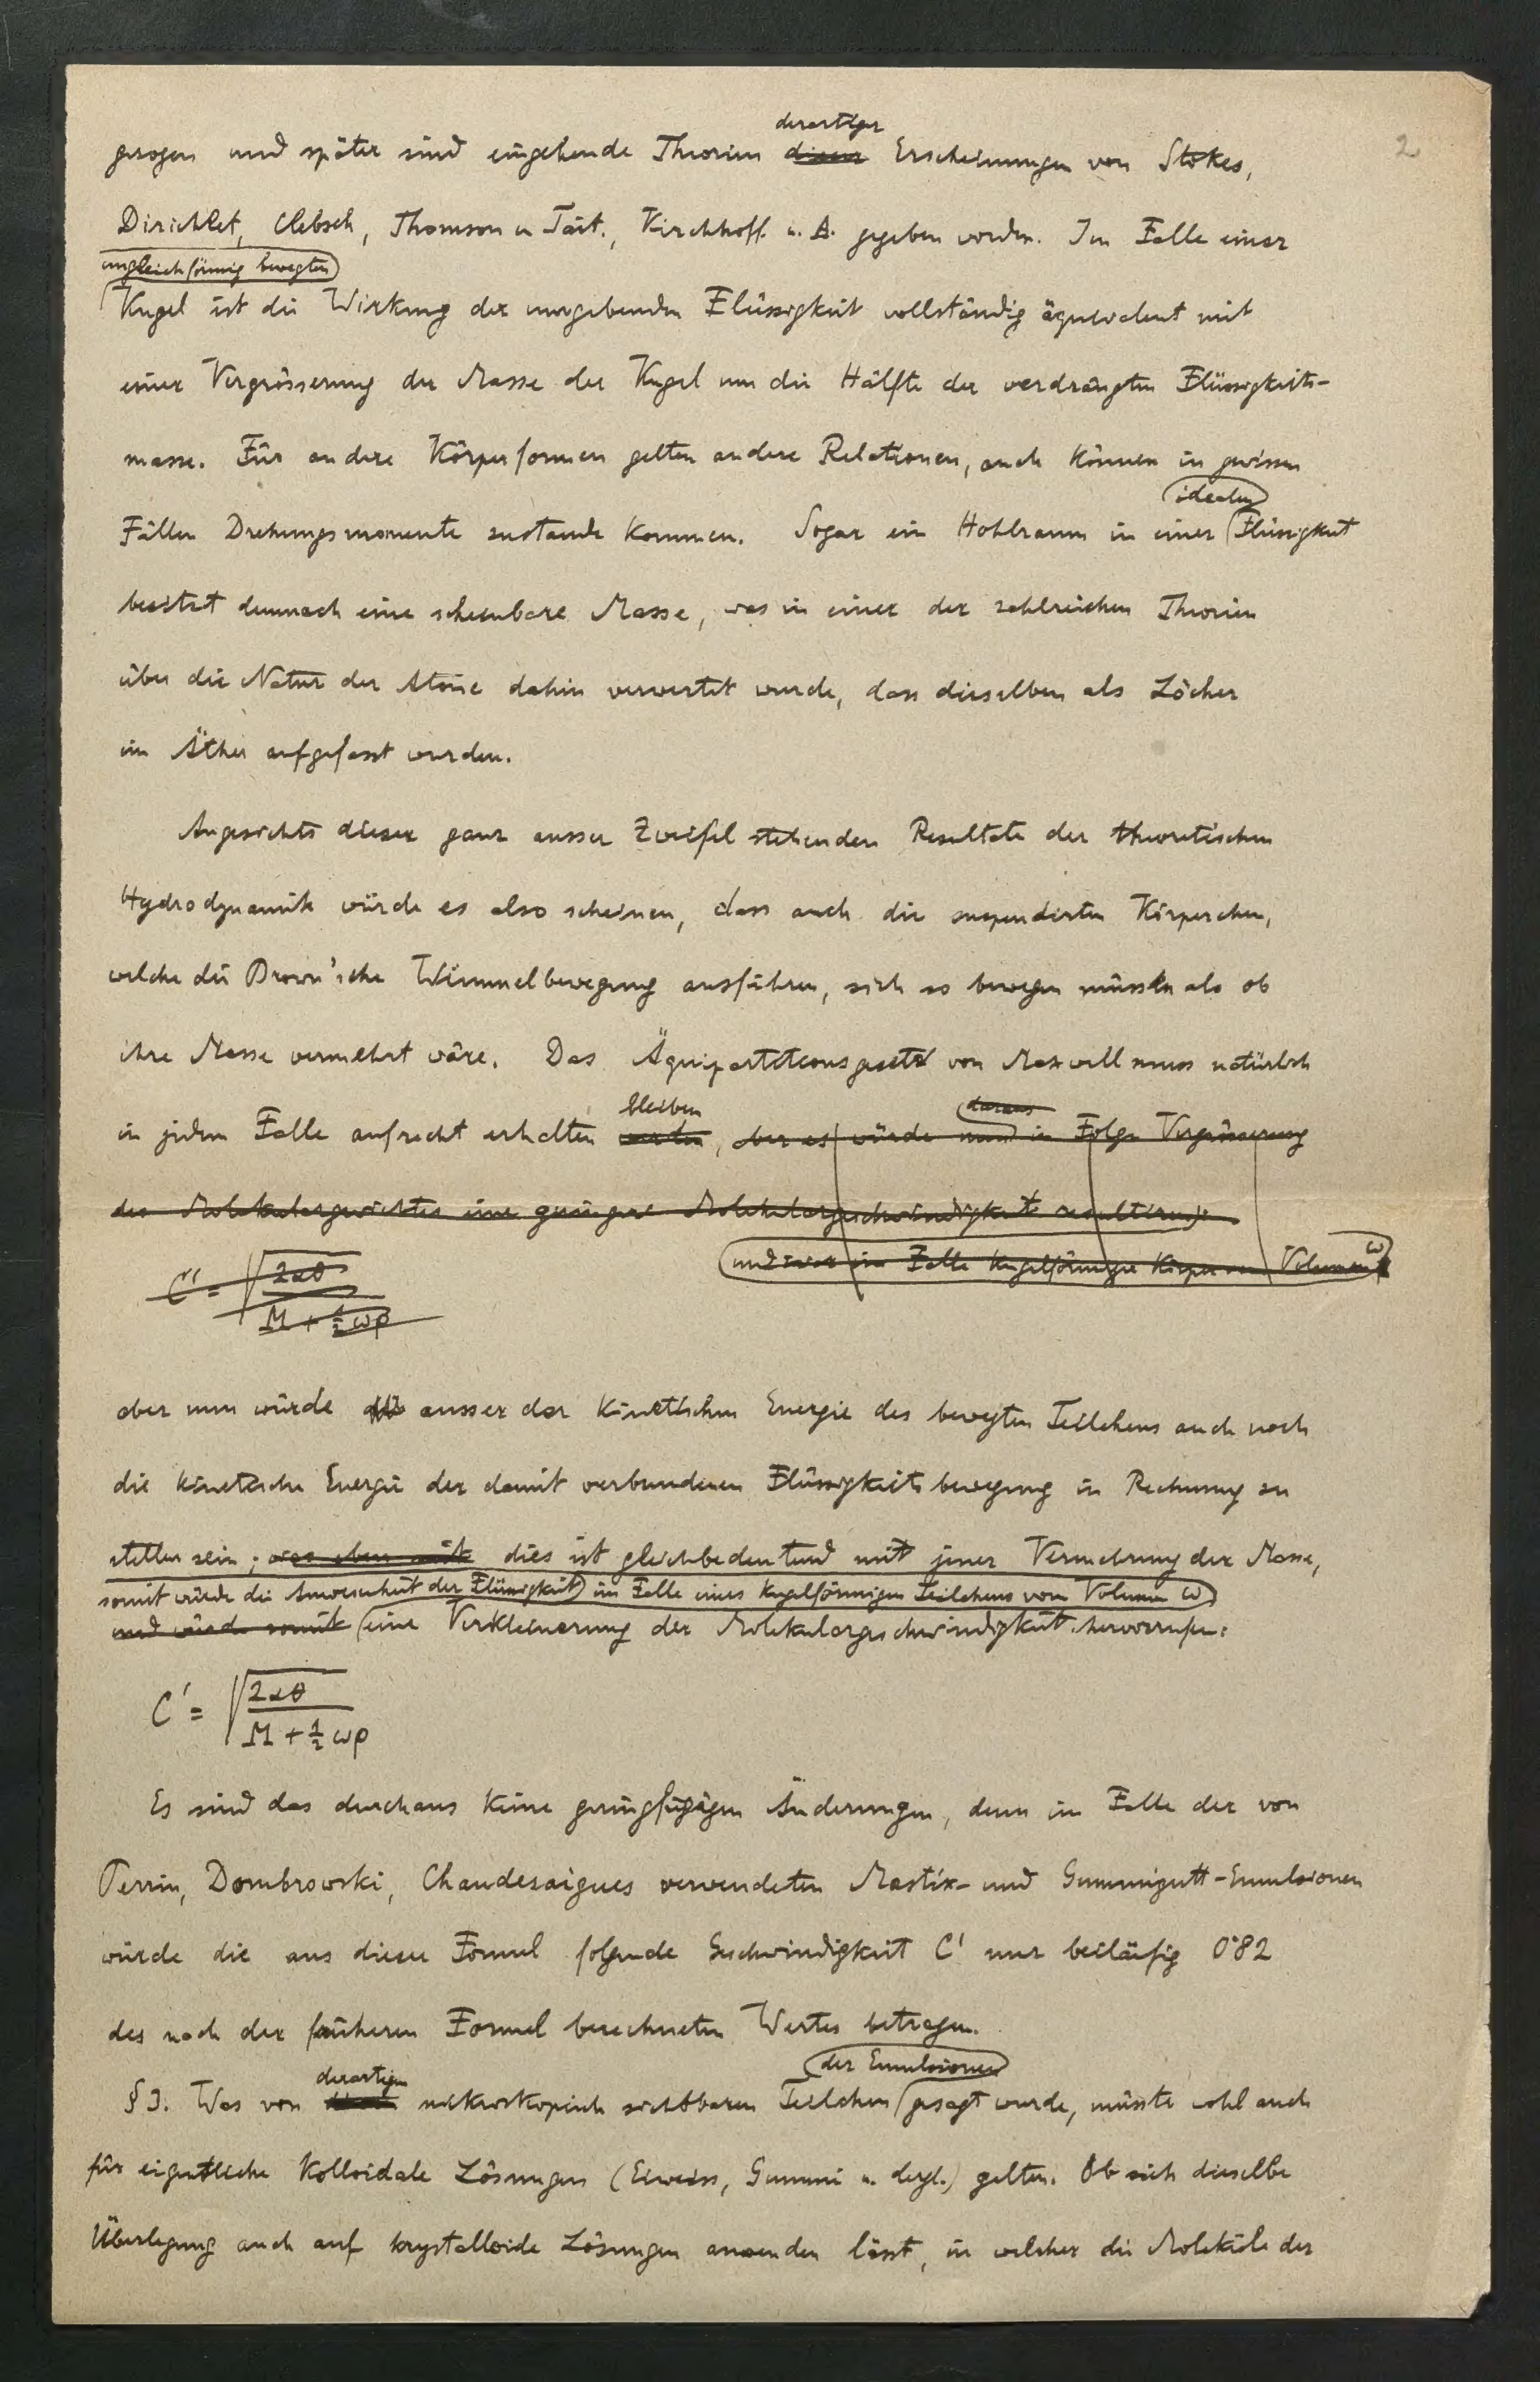 2
derartiger
gezogen und später sind eingehende Theorien dieser Erscheinungen von Stokes,
Dirichlet, Clebsch, Thomson u Tait., Kirchhoff. u. A. gegeben worden. Im Falle einer
ungleichförmig bewegten
Kugel ist die Wirkung der umgebenden Flüssigkeit vollständig äquivalent mit
einer Vergrösserung der Masse der Kugel um die Hälfte der verdrängten Flüssigkeits-
masse. Für andere Körperformen gelten andere Relationen, auch können in gewissen
idealen
Fällen Drehungsmomente zustande kommen. Sogar ein Hohlraum in einer Flüssigkeit
besitzt demnach eine scheinbare Masse, was in einer der zahlreichen Theorien
über die Natur der Atome dahin verwertet wurde, dass dieselben als Löcher
im Äther aufgefasst wurden.
Angesichts dieser ganz ausser Zweifel stehenden Resultate der theoretischen
Hydrodynamik würde es also scheinen, dass auch die suspendirten Körperchen,
welche die Brown'sche Wimmelbewegung ausführen, sich so bewegen müssten als ob
ihre Masse vermehrt wäre. Das Äquipartitionsgesetz von Maxwell muss natürlich
bleiben daraus
in jedem Falle aufrecht erhalten werden, aber es würde nun in Folge Vergrösserung
des Molekulargewichtes eine geringere Molekulargeschwindigkeit resultiren:
und zwar im Falle kugelförmiger Körper vom Volumen ω
C' = √2αθ / M + ½ ωρ
aber nun würde ausser der kinetischen Energie des bewegten Teilchens auch noch
die kinetische Energie der damit verbundenen Flüssigkeitsbewegung in Rechnung zu
stellen sein; was eben mit dies ist gleichbedeutend mit jener Vermehrung der Masse,
somit würde die Anwesenheit der Flüssigkeit im Falle eines kugelförmigen Teilchens vom Volumen ω
und würde somit eine Verkleinerung der Molekulargeschwindigkeit hervorrufen:
C' = √2αθ / M + ½ ωρ
Es sind das durchaus keine geringfügigen Änderungen, denn im Falle der von
Perrin, Dombrowski, Chaudesaigues verwendeten Mastix- und Gummigutt-Emulsionen
würde die aus dieser Formel folgende Geschwindigkeit C' nur beiläufig 0·82
des nach der früheren Formel berechneten Wertes betragen.
derartigen der Emulsionen
§3. Was von mikroskopisch sichtbaren Teilchen gesagt wurde, müsste wohl auch
für eigentliche kolloidale Lösungen (Eiweiss, Gummi u. dergl.) gelten. Ob sich dieselbe
Überlegung auch auf krystalloide Lösungen anwenden lässt, in welcher die Moleküle der